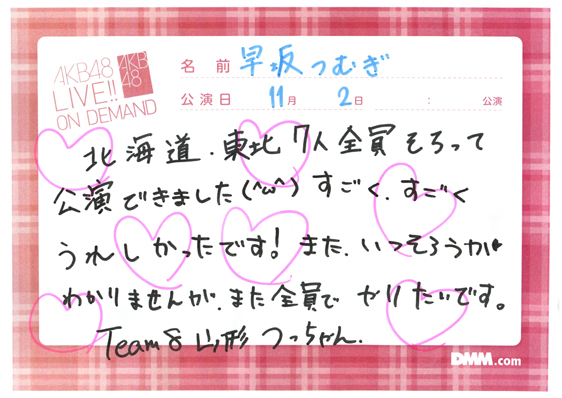 AKB48
LIVE!!
ON DEMAND
AKB
48
名前 早坂つむぎ
公演日 11月 2日 : 公演
北海道、東北 7人全員そろって
公演できました(^ω^) すごく、すごく
うれしかったです! また、いつそろうか
わかりませんが、また全員で やりたいです。
Team 8 山形 つっちゃん.
DMM.com